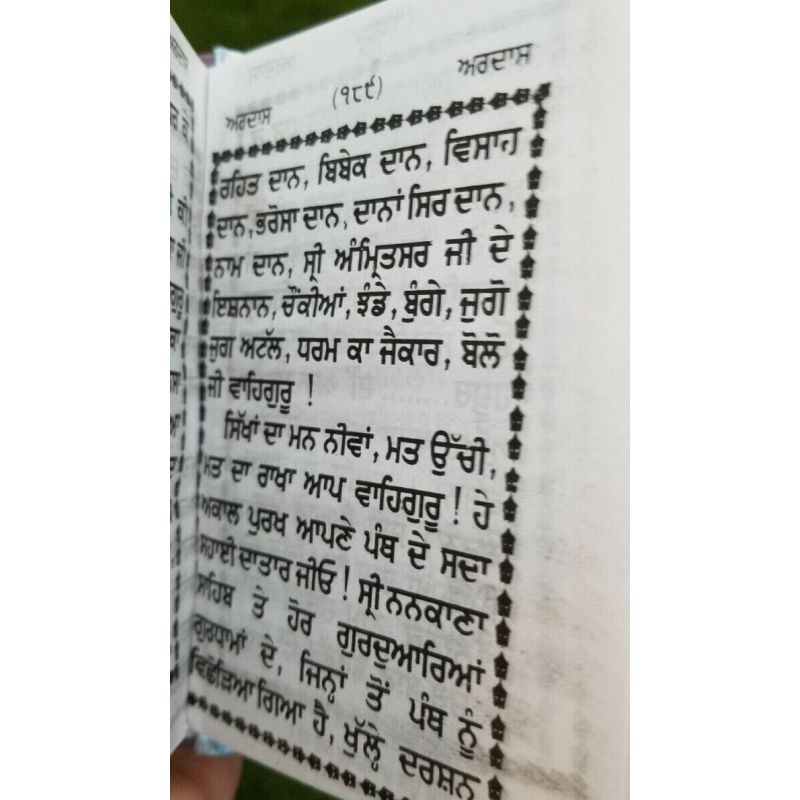 ਅਰਦਾਸ (੧੮੯) ਅਰਦਾਸ
ਰਹਿਤ ਦਾਨ, ਬਿਬੇਕ ਦਾਨ, ਵਿਸਾਹ
ਦਾਨ,ਭਰੋਸਾ ਦਾਨ,ਦਾਨਾਂ ਸਿਰ ਦਾਨ,
ਨਾਮ ਦਾਨ, ਸ੍ਰੀ ਅੰਮ੍ਰਿਤਸਰ ਜੀ ਦੇ
ਇਸ਼ਨਾਨ, ਚੌਂਕੀਆਂ, ਝੰਡੇ, ਬੁੰਗੇ, ਜੁਗੋ
ਜੁਗ ਅਟੱਲ, ਧਰਮ ਕਾ ਜੈਕਾਰ, ਬੋਲੋ
ਜੀ ਵਾਹਿਗੁਰੂ !
ਸਿੱਖਾਂ ਦਾ ਮਨ ਨੀਵਾਂ, ਮਤ ਉੱਚੀ,
ਮਤ ਦਾ ਰਾਖਾ ਆਪ ਵਾਹਿਗੁਰੂ ! ਹੇ
ਅਕਾਲ ਪੁਰਖ ਆਪਣੇ ਪੰਥ ਦੇ ਸਦਾ
ਸਹਾਈ ਦਾਤਾਰ ਜੀਓ ! ਸ੍ਰੀ ਨਨਕਾਣਾ
ਸਾਹਿਬ ਤੇ ਹੋਰ ਗੁਰਦੁਆਰਿਆਂ
ਗੁਰਧਾਮਾਂ ਦੇ, ਜਿਨ੍ਹਾਂ ਤੋਂ ਪੰਥ ਨੂੰ
ਵਿਛੋੜਿਆ ਗਿਆ ਹੈ, ਖੁੱਲ੍ਹੇ ਦਰਸ਼ਨ